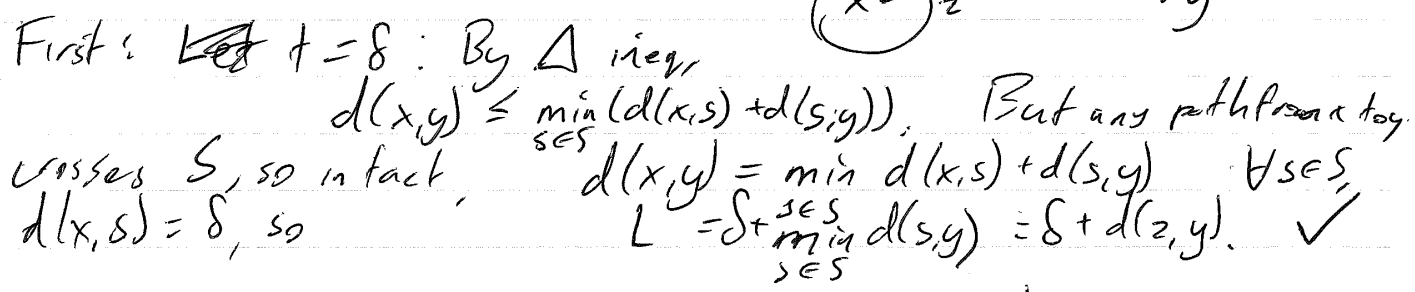 x 2 y
First: t = δ : By Δ ineq,
d(x,y) ≤ min (d(x,s) + d(s,y)). But any path from x to y
s∈S
crosses S, so in fact, d(x,y) = min d(x,s) + d(s,y) ∀s∈S,
s∈S
d(x,s) = δ, so L = δ + min d(s,y) = δ + d(z,y). ✓
s∈S